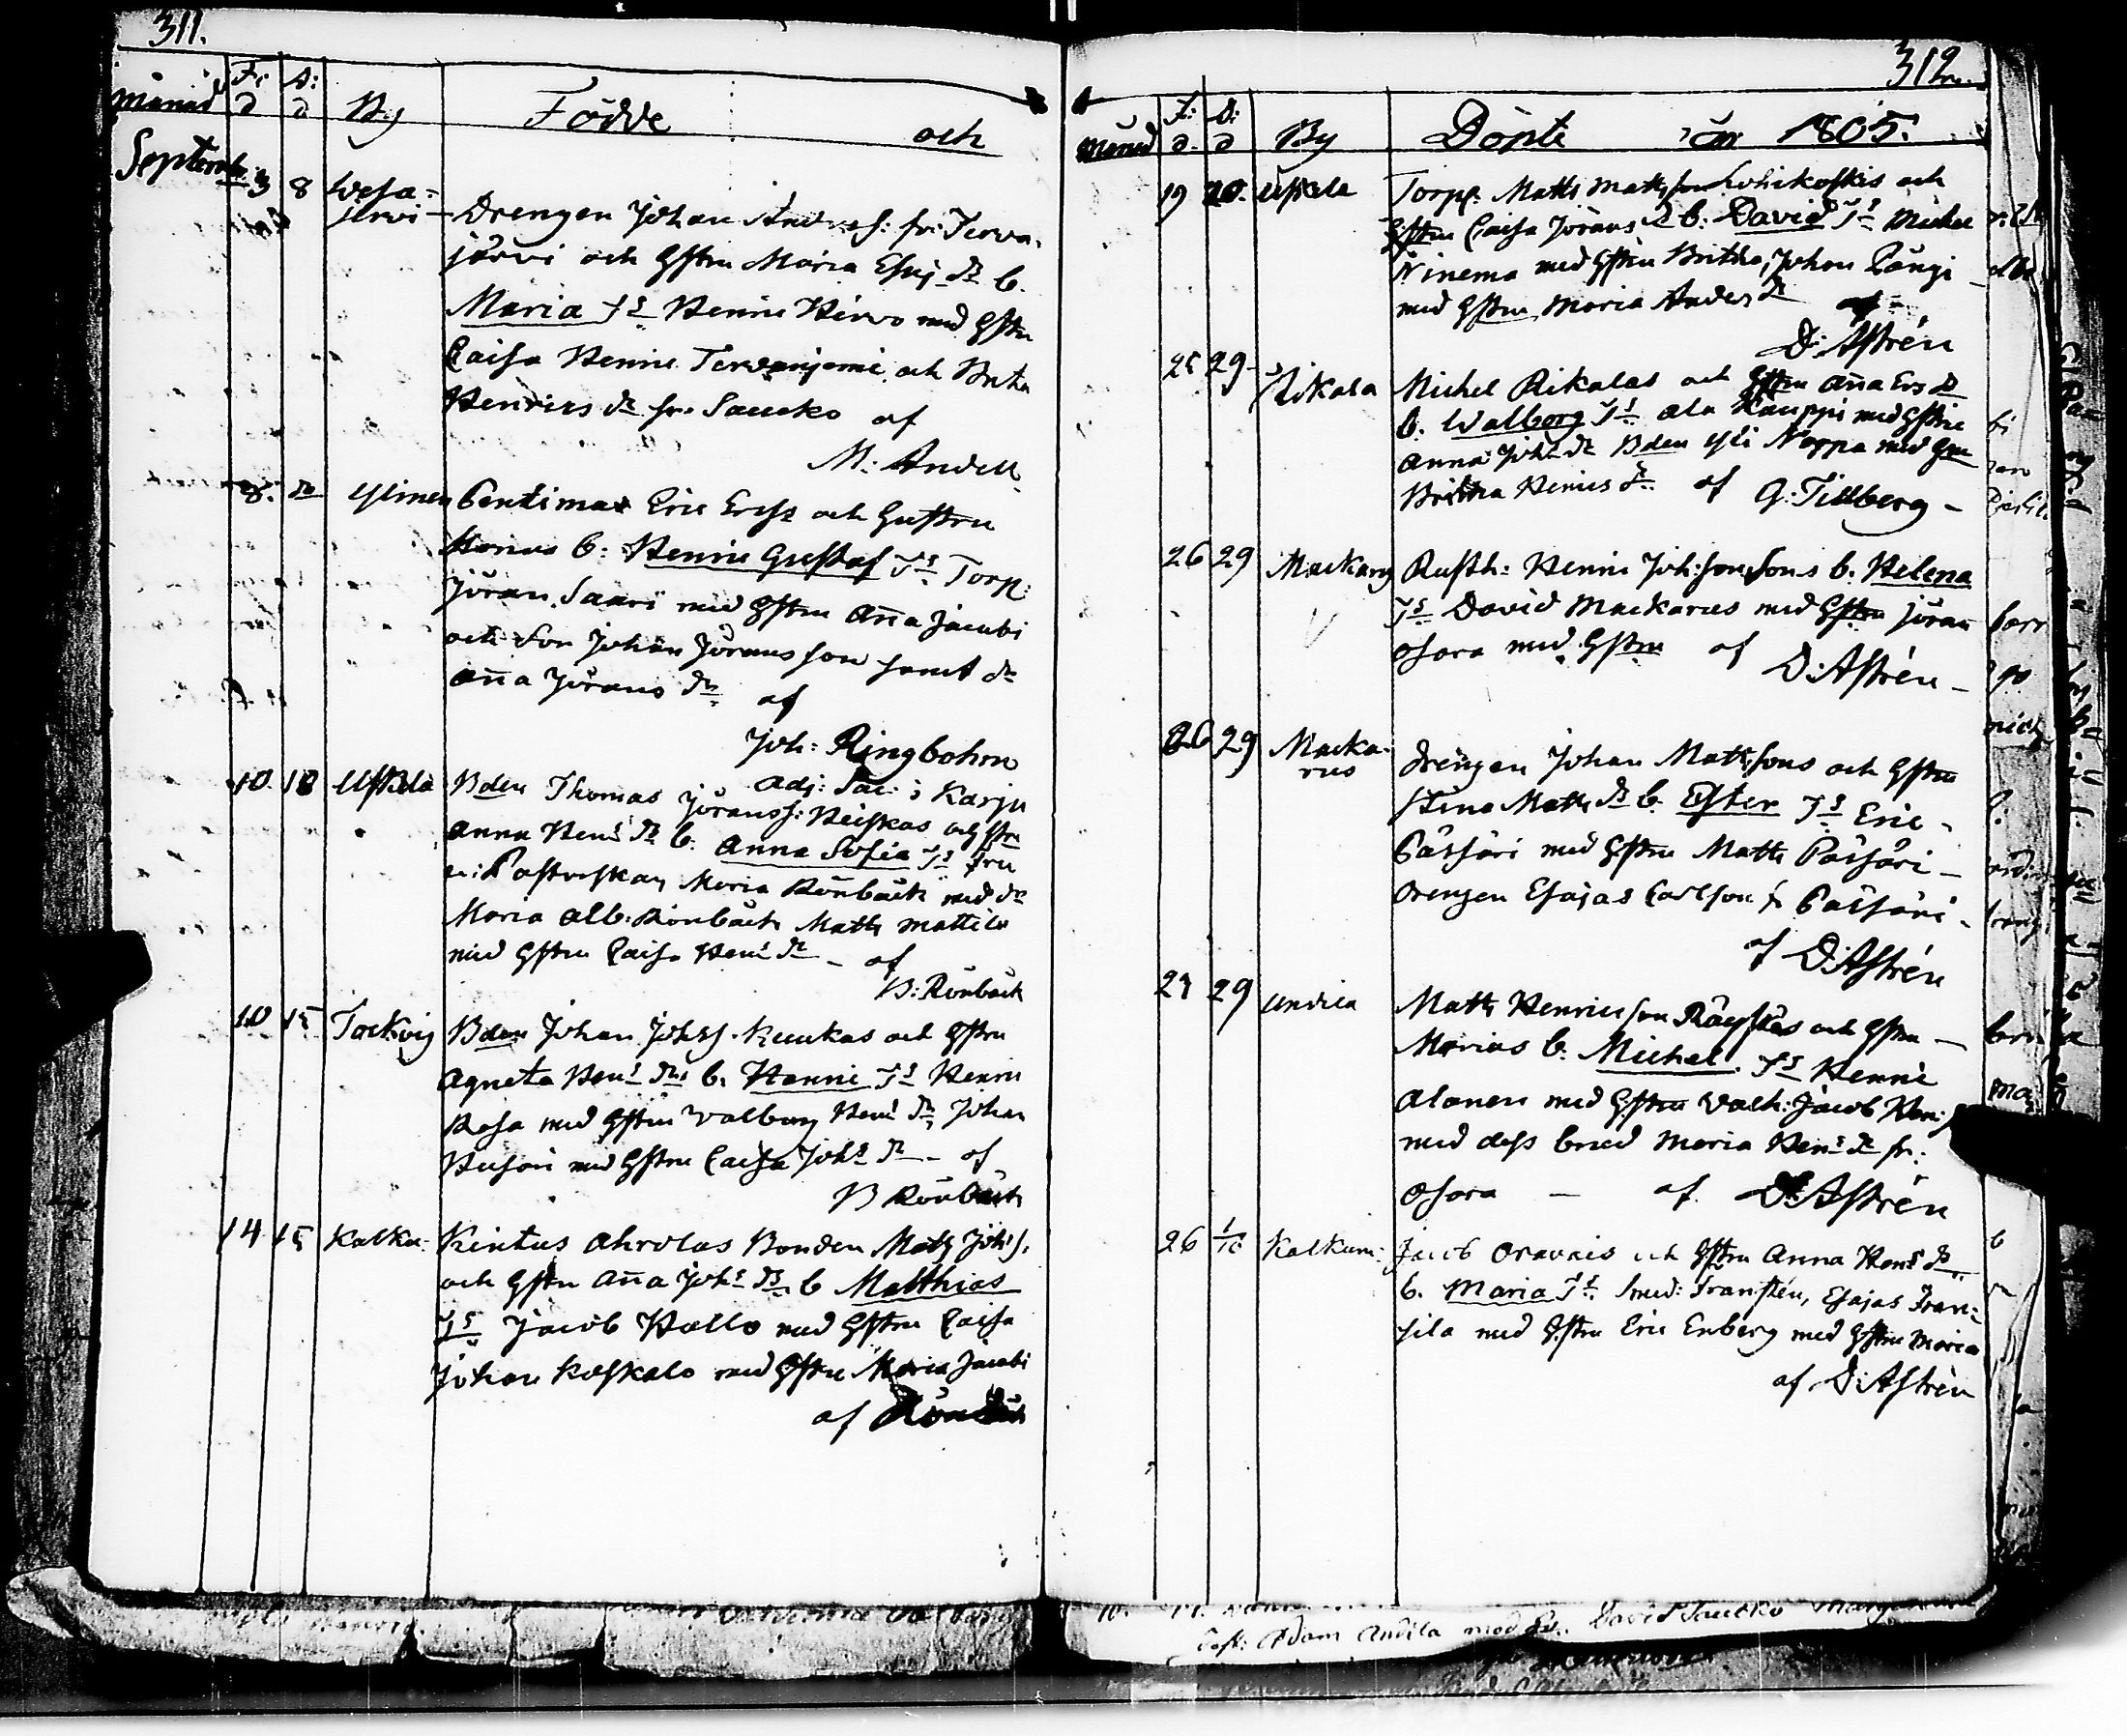 311.
månad F: d D: d By Födde och
September 3 8 Wesa=
järvi – Drengen Johan Anders s: fr: Terva-
järvi och hstru Maria Esaj dr b.
Maria Ts Henric Hirvo med hstru
Caisa Henric Tervaniemi och Brita
Henrics dr fr. Saucko af
M: Andell
8. Ylinen Bentimax Eric Ersss och hustru
Marias b: Henric Gustaf Ts Torp:
Jöran Saari med hstru Aña Jacobi
och Son Johan Jörans son samt dr
Aña Jörans dr af
Joh: Ringbohm
Adj: Sac: i Karju
10. 18 Ufskila Bden Thomas Jöranss: Heiskas och hstru
Anna Hens dr b. Anna Sofia Ts fru
Pastorskan Maria Rönbäck med dr
Maria Alb: Rönbäck Matts Mattila
med hstru Caisa Hens dr – af
B: Rönbäck
10 15 Torkvig Bden Johan Johss. Kuukas och hstru
Agneta Hens drs b. Henric Ts Henric
Rosa med hstru Walborg Hens dr, Johan
Husari med hstru Caisa Johs dr – af
B Rönbäck
14 15 Kalku: Kintus Ahrolas Bonden Matts Johs s.
och hstru Aña Johs drs b Matthias
Ts Jacob Hallo med hstru Caisa
Johan Koskalo med hstru Maria Jacobi
af Rönbäck
312
månad F: d. D: d By Döpte år 1805.
19 20. Ufskila Torp: Matts Mattsson Lohikoskis och
hstru Caisa Jörans dr b: David Ts Michel
Ninema med hstru Britha, Johan Pångi
med hstru Maria Anders dr af
D: Astrén
25 29 Rikala Michel Rikalas och hstru Aña Ers dr
b. Walborg Ts Ala Kauppi med hstru
Anna Joh: dr Bden Yli Noppa med hu
Britha Henrics dr. af G: Tillberg –
26 29 Mackarus Rusth: Henric Joh: sons Sons b. Helena
Ts David Mackarus med hstru Jöran
Osara med hstru af D: Astrén –
26 29 Macka-
rus drengen Johan Mattssons och hstru
Stina Matts dr b. Ester Ts Eric
Pässäri med hstru Matts Pässäri –
drengen Esajas Carlson fr Pässäri –
af D: Astrén
27 29 Andila Matts Henricsson Räyskäs och hstru –
Marias b. Michel. Ts Henric
Alanen med hstru Jacob Hen: s
med dess brud Maria Hens dr fr:
Osara – af. D: Astrén
26 1/10 Kalkun: Jacob Oravais och hstru Anna Hens dr
b. Maria Ts Smed: Franstén, Esajas Fran=
sila med hstru Eric Enberg med hstru Maria
af D: Astrén
Adam Andila med David Saucko